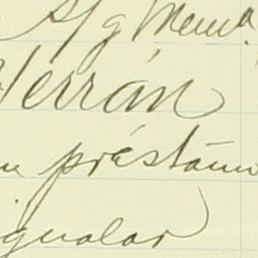 S/g Mem.
Herrán
préstamo
igualar